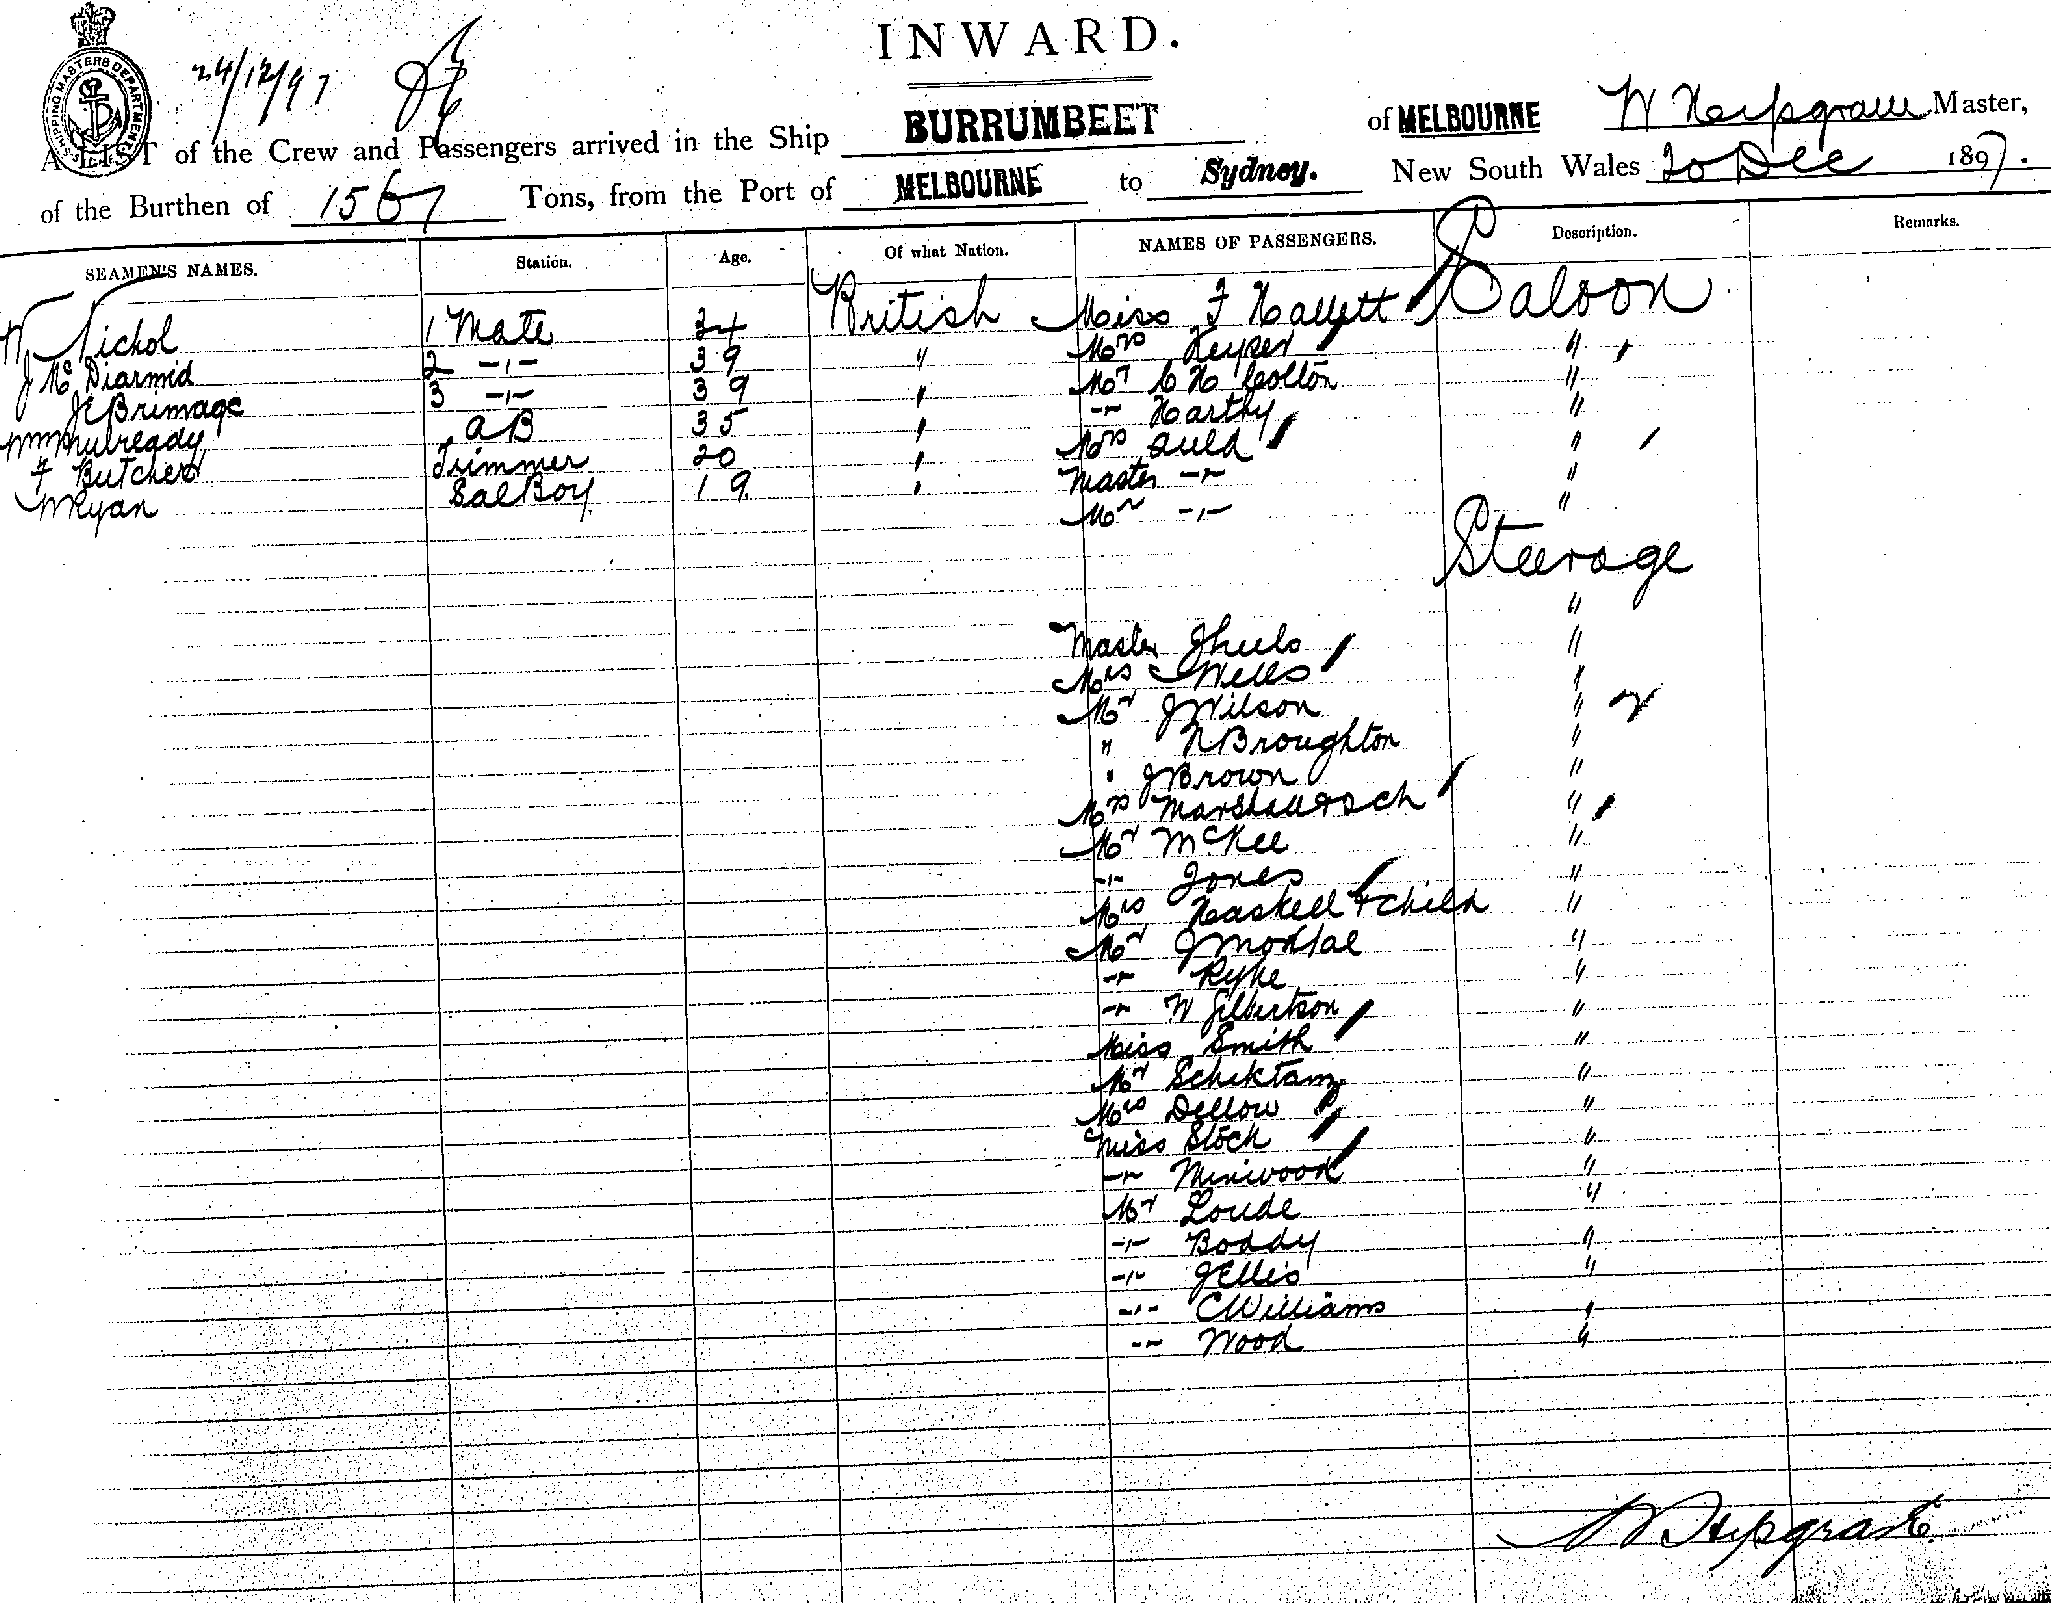 INWARD.
SHIPPING MASTERS DEPARTMENT
24/12/97
A LIST of the Crew and Passengers arrived in the Ship BURRUMBEET of MELBOURNE W Master,
of the Burthen of 1567 Tons, from the Port of MELBOURNE to Sydney. New South Wales 20 Dec 1897.
SEAMEN'S NAMES. Station. Age. Of what Nation. NAMES OF PASSENGERS. Description. Remarks.
W Nichol 1 Mate 34 British Miss F Hallett Saloon
J Mc Diarmid 2 -,,- 39 " Mrs Keyser "
JE Brimage 3 -,,- 39 " Mr C H Colton "
Wm Mulready AB 35 " -,,- Harthy "
F Butcher Trimmer 20 " Mrs Auld "
W Ryan Sal Boy 19 " Master -,,- "
Mr -,,- "
Steerage
"
Master "
Mrs Wells "
Mr J Wilson "
" N Broughton "
" J Brown "
Mrs Marshall & 2 ch "
Mr McKee "
-,,- Jones "
Mrs Haskell & child "
Mr J "
-,,- Ryke "
-,,- W Gilbertson "
Miss Smith "
Mr Schektanz "
Mrs Dellow "
Miss Stock "
-,,- "
Mr Loude "
-,,- Boddy "
-,,- J Ellis "
-,,- C Williams "
-,,- Wood "